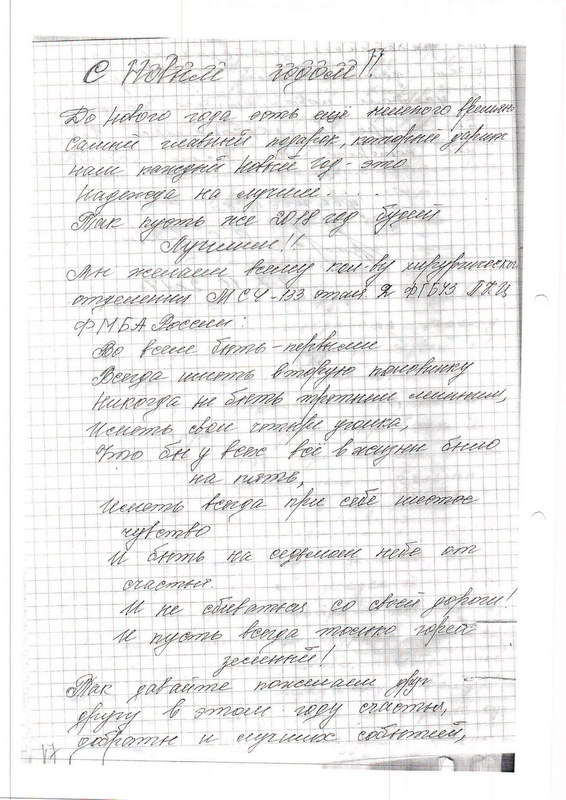 С Новым годом!!
До Нового года есть ещё немного времени
Самый главный подарок, который дарит
нам каждый Новый год - это
Надежда на лучшее....
Так пусть же 2018 год будет
Лучшим!!
Мы желаем всему кол-ву хирургического
отделения МСЧ-133 этаж 2 ФГБУЗ ПКЦ
ФМБА России:
Во всем быть - первыми
Всегда иметь вторую половинку
Никогда не быть третьим лишним,
Иметь свои четыре уголка,
Что бы у всех всё в жизни было
на пять,
Иметь всегда при себе шестое
чувство
И быть на седьмом небе от
счастья.
И не сбиваться со своей дороги!
И пусть всегда только горит
зеленый!
Так давайте пожелаем друг
другу в этом году счастья,
доброты и лучших событий,